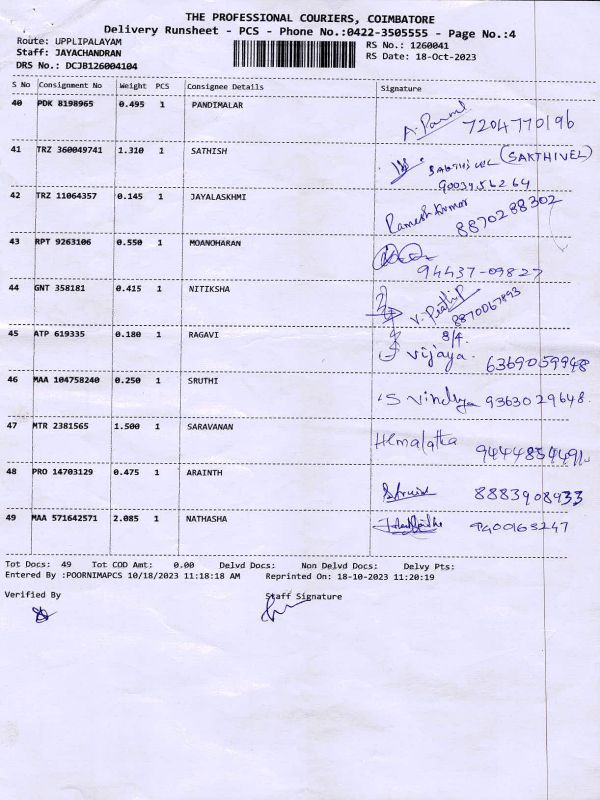 THE PROFESSIONAL COURIERS, COIMBATORE
Delivery Runsheet - PCS - Phone No.:0422-3505555 - Page No.:4
Route: UPPLIPALAYAM
Staff: JAYACHANDRAN
DRS No.: DCJB126004104
RS No.: 1260041
RS Date: 18-Oct-2023
S No Consignment No Weight PCS Consignee Details Signature
40 PDK 8198965 0.495 1 PANDIMALAR 7204770196
41 TRZ 360049741 1.310 1 SATHISH (SAKTHIVEL)
42 TRZ 11064357 0.145 1 JAYALASKHMI Ramesh Kumar 8870288302
43 RPT 9263106 0.550 1 MOANOHARAN 94437-09827
44 GNT 358181 0.415 1 NITIKSHA 8870067893
45 ATP 619335 0.180 1 RAGAVI Vijaya 6369059948
46 MAA 104758240 0.250 1 SRUTHI 9363029648.
47 MTR 2381565 1.500 1 SARAVANAN Hemalatha
48 PRO 14703129 0.475 1 ARAINTH 8883908933
49 MAA 571642571 2.085 1 NATHASHA 9400163247
Tot Docs: 49 Tot COD Amt: 0.00 Delvd Docs: Non Delvd Docs: Delvy Pts:
Entered By :POORNIMAPCS 10/18/2023 11:18:18 AM Reprinted On: 18-10-2023 11:20:19
Verified By Staff Signature